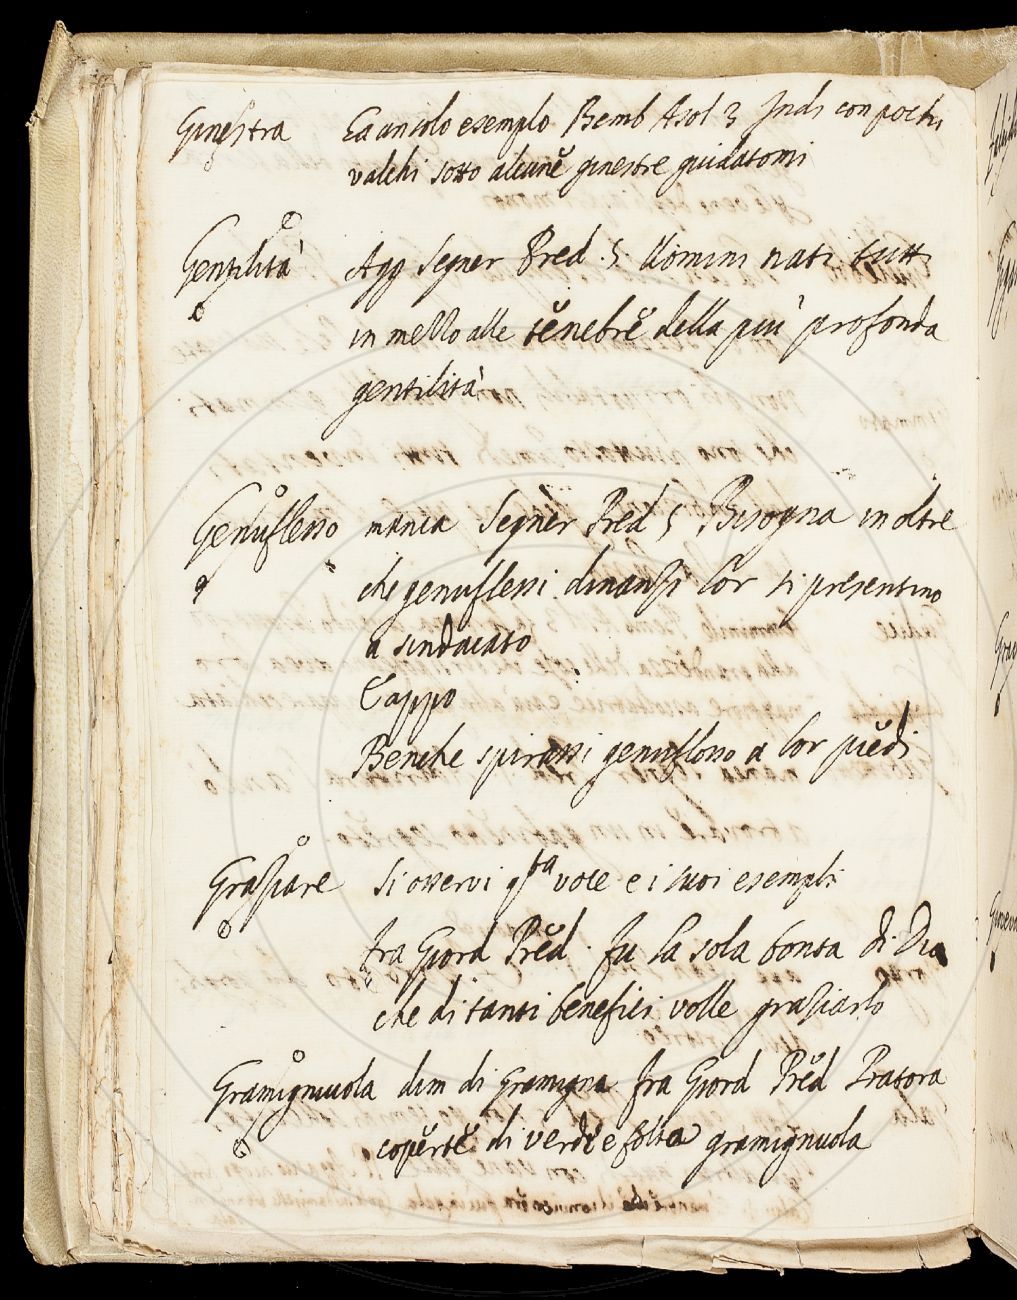 Ginestra Ea un solo esemplo Bemb Asol 3 Indi con pochi
valchi sotto alcunĕ ginestre guidatomi
Gentilità Agg Segner Pred. 5. Uomini nati tutti
in mezzo alle tĕnebrĕ della più profonda
gentilità
Genuflesso manca Segnĕr Prĕd 5, Bisogna inoltre
che genuflessi dinanzi lor si presentino
a sindacato
Cappo
Benche spirassi genuflesso a lor piĕdi
Graziare Si osservi qsta voce e i suoi esempli
fra Giord Prĕd. fu la sola bonta di Dio
che di tanti benefici volle graziarlo
Gramignuola dim di Gramigna fra Giord Prĕd Pratora
copĕrtĕ di verde e folta gramignuola